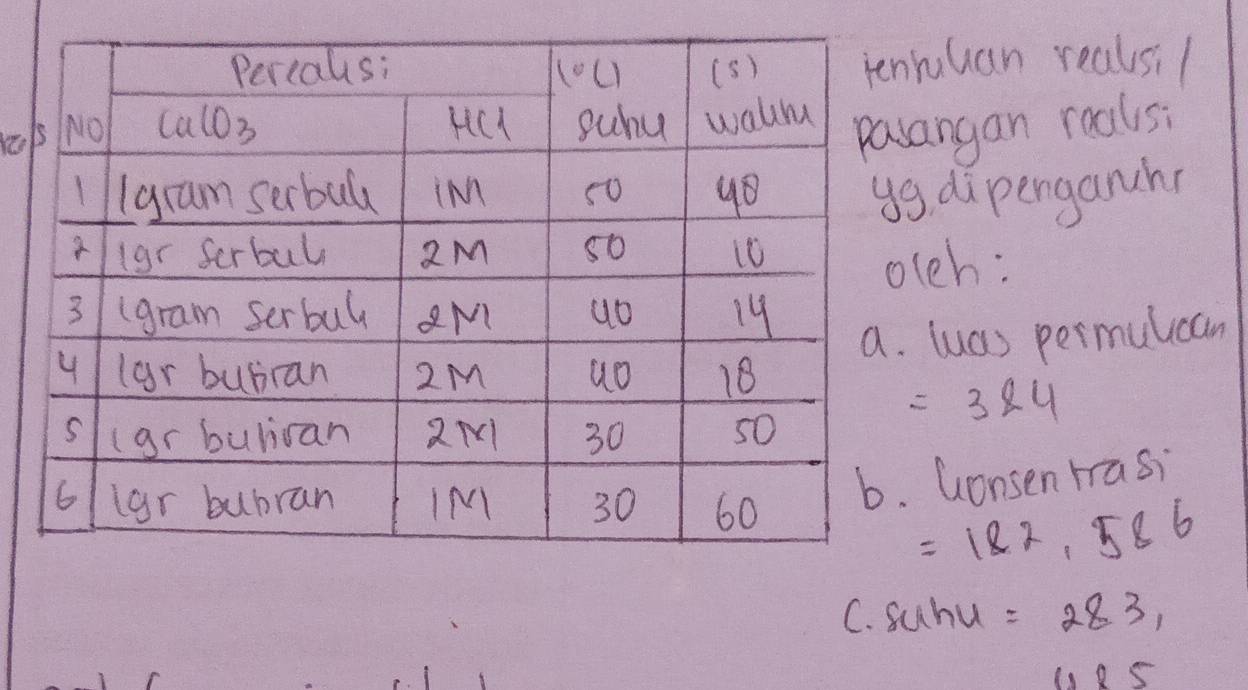 Pereaksi (°C) (s)
NO CaCO3 HCl suhu waktu
1 1gram serbuk 1M 50 40
2 1gr serbuk 2M 50 10
3 1gram serbuk 2M 40 14
4 1gr butiran 2M 40 18
5 1gr butiran 2M 30 50
6 1gr butiran 1M 30 60
tentukan reaksi/
pasangan reaksi
yg dipengaruhi
oleh:
a. luas permukaan
= 3&4
b. konsentrasi
= 1&2, 5&6
C. suhu = 2&3,
4&5